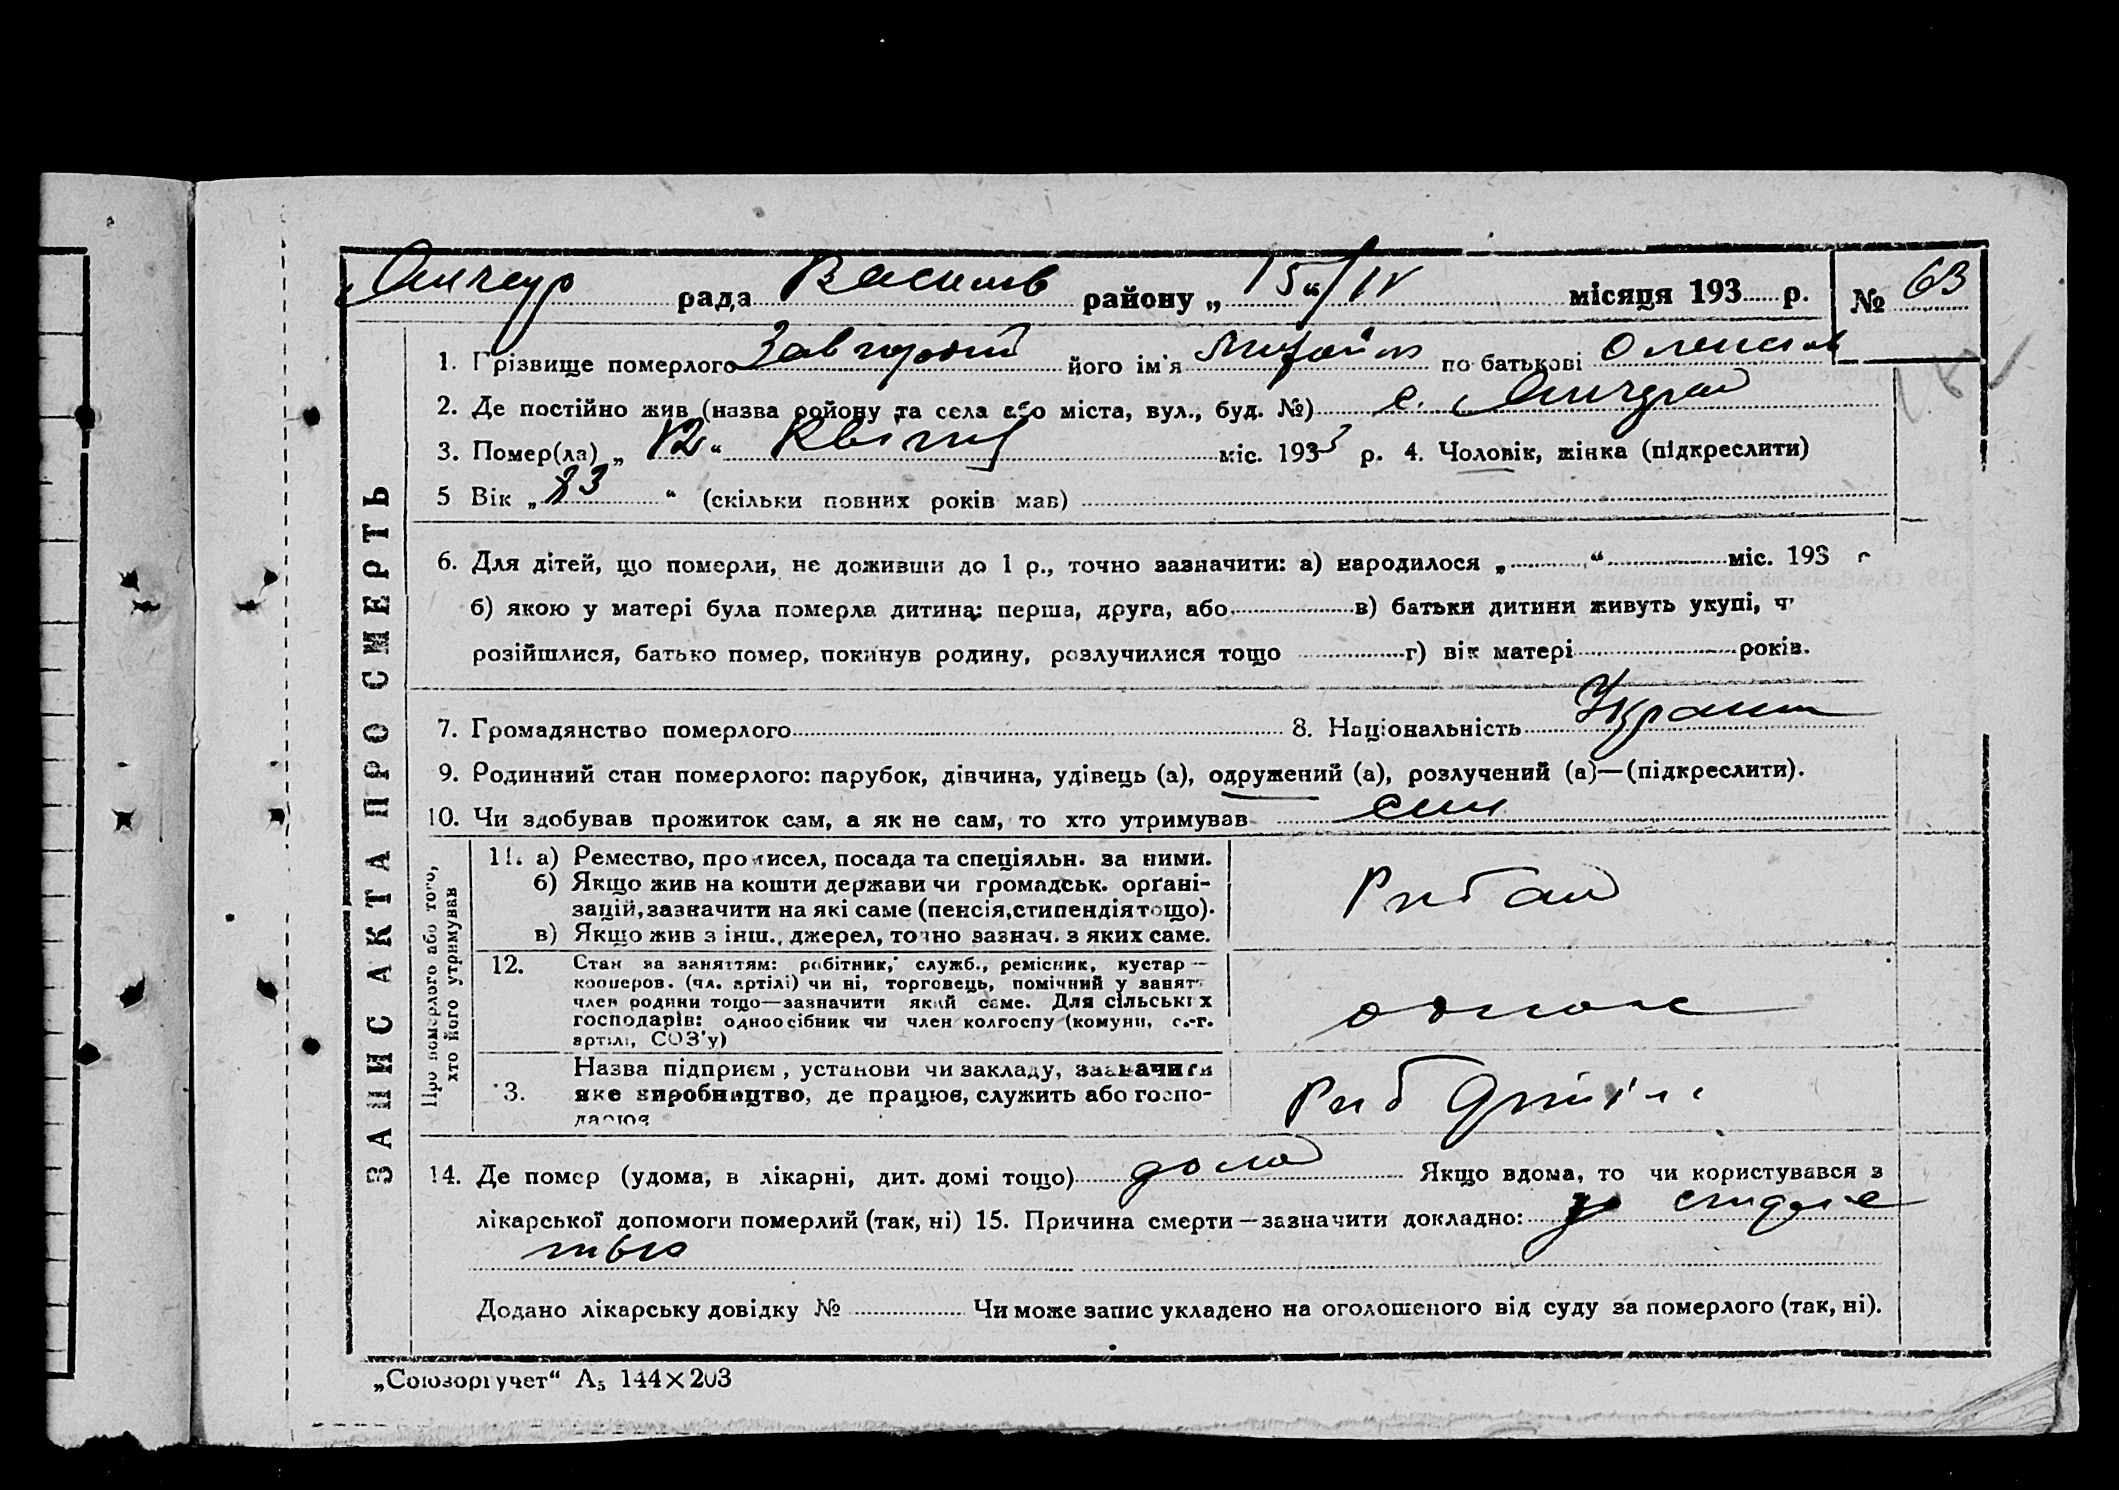 рада Василів району „ 15 “ / IV місяця 193 р. № 63
ЗАПИС АКТА ПРО СМЕРТЬ
1. Прізвище померлого Завгородній його ім'я Михайло по батькові Олексієв
2. Де постійно жив (назва району та села або міста, вул., буд. №) с.
3. Помер(ла) „ 12 “ Квітня міс. 1933 р. 4. Чоловік, жінка (підкреслити)
5 Вік „ 73 “ (скільки повних років мав)
6. Для дітей, що померли, не доживши до 1 р., точно зазначити: а) народилося „ “ міс. 193 р
б) якою у матері була померла дитина: перша, друга, або в) батьки дитини живуть укупі, ч
розійшлися, батько помер, покинув родину, розлучилися тощо г) вік матері років.
7. Громадянство померлого 8. Національність Украин
9. Родинний стан померлого: парубок, дівчина, удівець (а), одружений (а), розлучений (а)—(підкреслити).
10. Чи здобував прожиток сам, а як не сам, то хто утримував син
Про померлого або того,
хто його утримував
11. а) Ремество, промисел, посада та спеціяльн. за ними.
б) Якщо жив на кошти держави чи громадськ. орґані-
зацій, зазначити на які саме (пенсія, стипендія тощо).
в) Якщо жив з інш., джерел, точно зазнач. з яких саме.
Рибак
12. Стан за заняттям: робітник, служб., ремісник, кустар —
кооперов. (чл. артілі) чи ні, торговець, помічний у занят
член родини тощо—зазначити який саме. Для сільських
господарів: одноосібник чи член колгоспу (комуни, с.-г.
артілі, СОЗ'у)
13. Назва підприєм, установи чи закладу, зазначити
яке виробництво, де працює, служить або госпо-
дарює
Риб Артіль
14. Де помер (удома, в лікарні, дит. домі тощо) дома Якщо вдома, то чи користувався з
лікарської допомоги померлий (так, ні) 15. Причина смерти—зазначити докладно:
Додано лікарську довідку № Чи може запис укладено на оголошеного від суду за померлого (так, ні).
„Союзоргучет“ А5 144×203